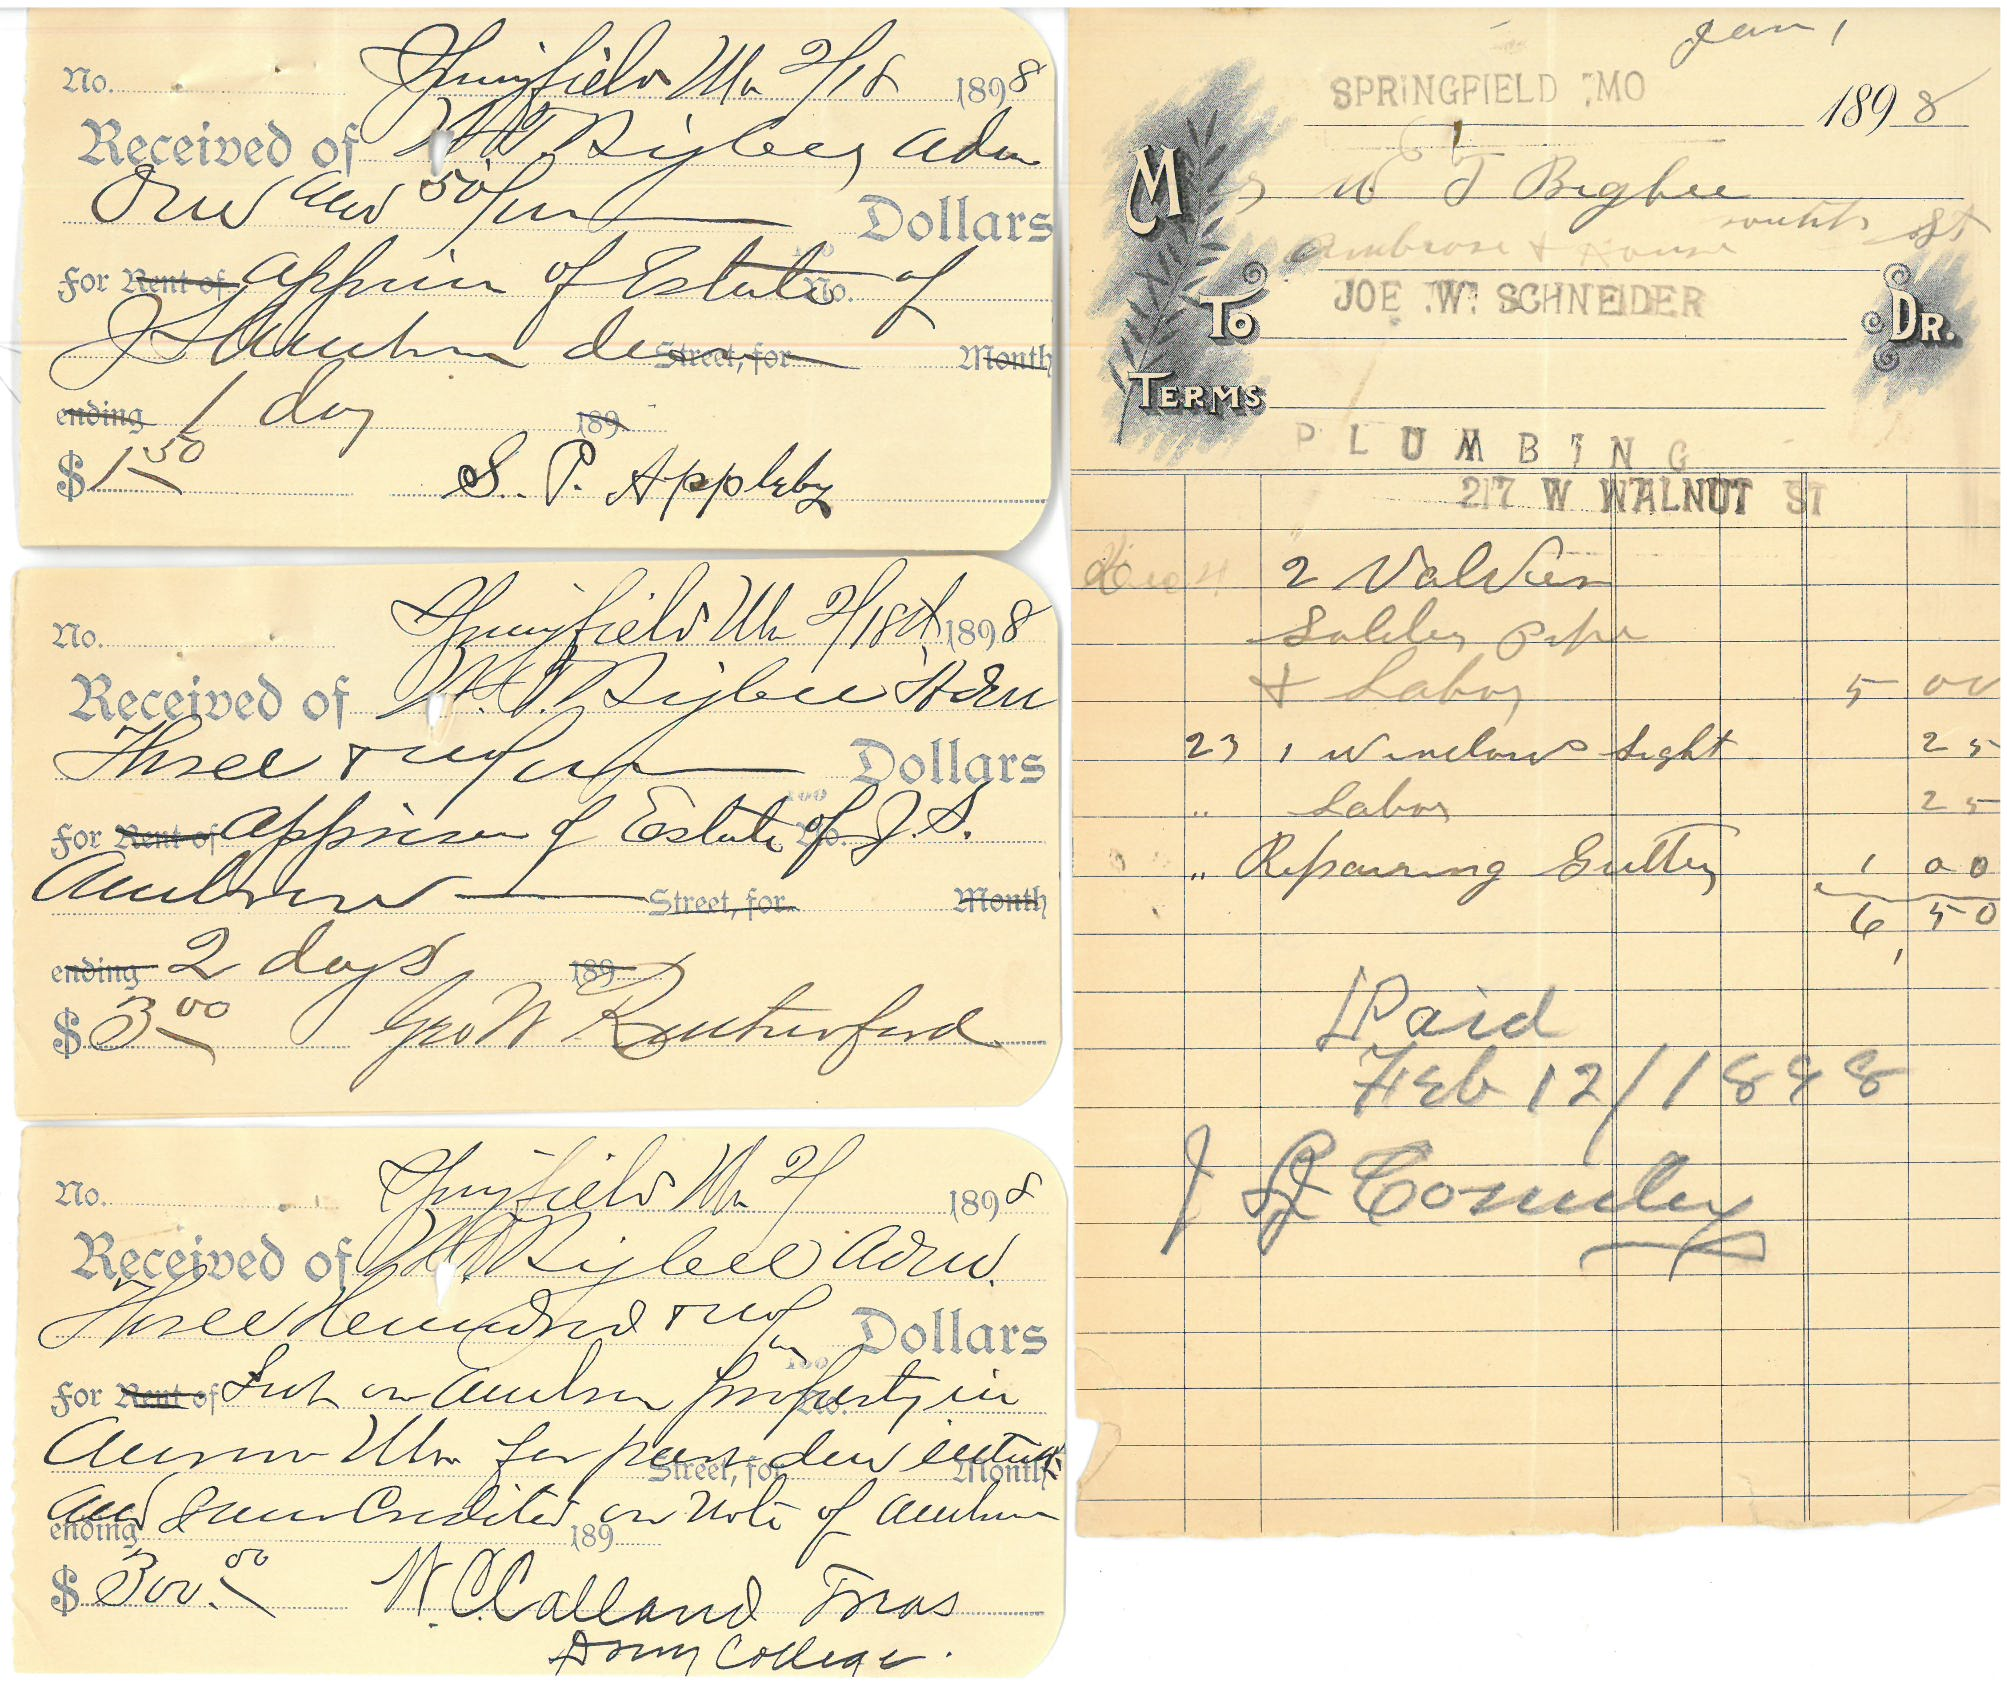 No. Springfield Mo 2/18 1898
Received of W. T. Bigbee Adm
One and 50/ Dollars
100
For Rent of of Estate No. of
J S Ambrose dec Street, for Month
ending 1 day 189
$ 1.50 S. P. Appleby
No. Springfield Mo 2/18th 1898
Received of W. T. Bigbee Adm
Three & no/ Dollars
100
For Rent of of Estate No. of J. S.
Ambrose Street, for Month
ending 2 days 189
$ 3.00 Geo W Rutherford
No. Springfield Mo 2/ 1898
Received of W T Bigbee Adm.
Three Hundred & no/ Dollars
100
For Rent of Int on Ambrose property in No.
Aurora Mo. for past due Street, for Month
and same Credited on Note of Ambrose
ending 189
$ 300.00 W. C. Calland Treas
Drury College.
Jan 1
SPRINGFIELD MO 1898
M W T Bigbee
Ambrose & House south St
To JOE W. SCHNEIDER Dr.
TERMS
PLUMBING
217 W WALNUT ST
2 Valves
Solder pipe
& Labor 5 00
23 1 Window Light 25
" Labor 25
" Repairing Gutter 1 00
6 50
Paid
Feb 12/1898